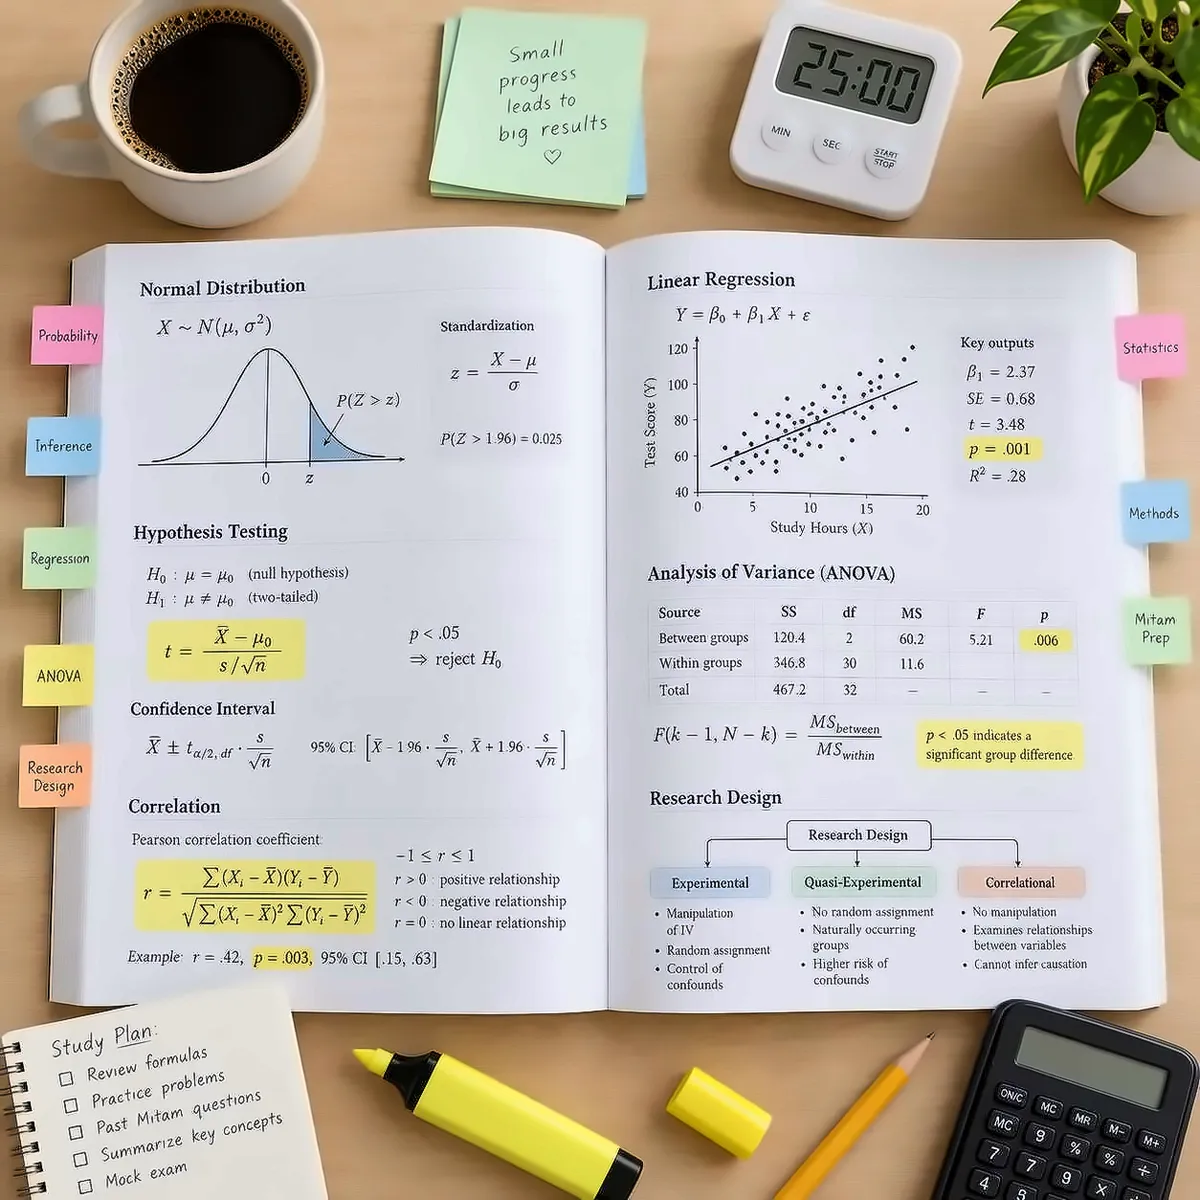 Small
progress
leads to
big results
♡
25:00
MIN
SEC
START
STOP
Probability
Inference
Regression
ANOVA
Research
Design
Normal Distribution
X ~ N(μ, σ²)
P(Z > z)
0 z
Standardization
z = (X − μ) / σ
P(Z > 1.96) = 0.025
Hypothesis Testing
H₀ : μ = μ₀ (null hypothesis)
H₁ : μ ≠ μ₀ (two-tailed)
t = (X̄ − μ₀) / (s / √n)
p < .05
⇒ reject H₀
Confidence Interval
X̄ ± t α/2, df · s/√n
95% CI: [X̄ − 1.96 · s/√n, X̄ + 1.96 · s/√n]
Correlation
Pearson correlation coefficient:
r = ∑(Xᵢ − X̄)(Yᵢ − Ȳ) / √∑(Xᵢ − X̄)² ∑(Yᵢ − Ȳ)²
−1 ≤ r ≤ 1
r > 0 : positive relationship
r < 0 : negative relationship
r = 0 : no linear relationship
Example: r = .42, p = .003, 95% CI [.15, .63]
Linear Regression
Y = β₀ + β₁X + ε
Test Score (Y)
120
100
80
60
40
0 5 10 15 20
Study Hours (X)
Key outputs
β₁ = 2.37
SE = 0.68
t = 3.48
p = .001
R² = .28
Analysis of Variance (ANOVA)
Source SS df MS F p
Between groups 120.4 2 60.2 5.21 .006
Within groups 346.8 30 11.6
Total 467.2 32 – – –
F(k − 1, N − k) = MSbetween / MSwithin
p < .05 indicates a
significant group difference
Research Design
Research Design
Experimental
• Manipulation
of IV
• Random assignment
• Control of
confounds
Quasi-Experimental
• No random assignment
• Naturally occurring
groups
• Higher risk of
confounds
Correlational
• No manipulation
• Examines relationships
between variables
• Cannot infer causation
Statistics
Methods
Mitam
Prep
Study Plan:
Review formulas
Practice problems
Past Mitam questions
Summarize key concepts
Mock exam
ON/C MC MR M− M+
MC 9 % % ÷
7 7 9 X
4 6